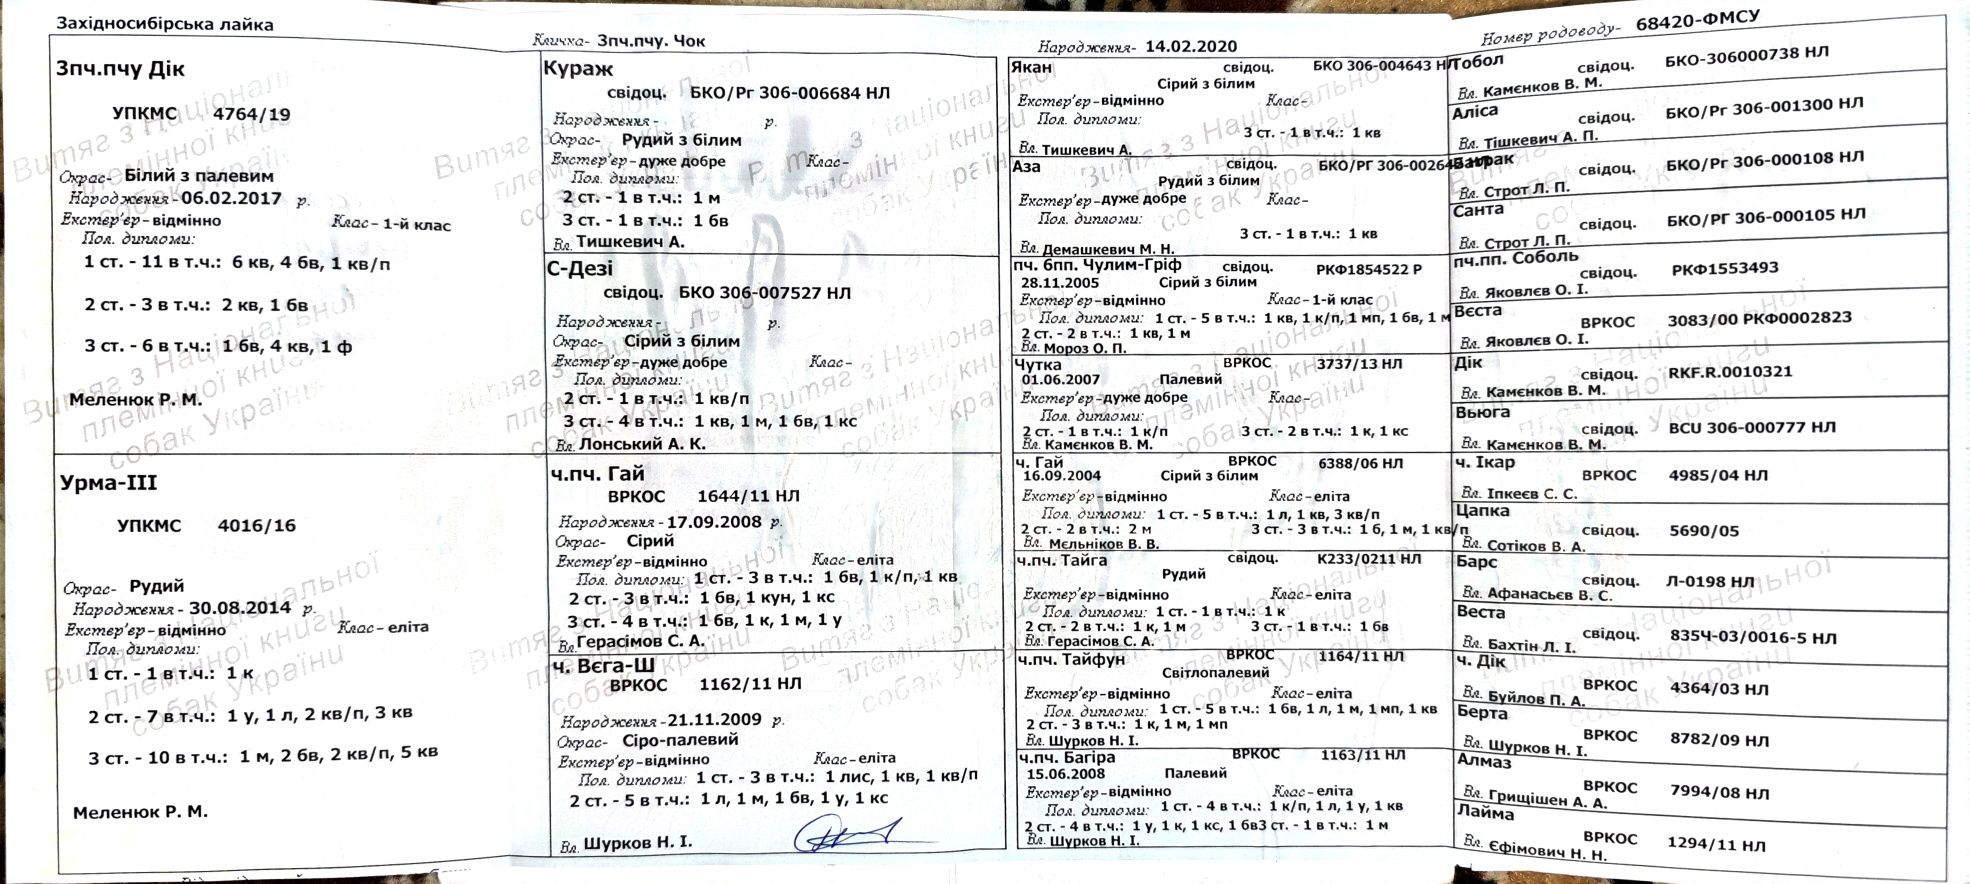 Західносибірська лайка
Кличка- Зпч.пчу. Чок
Народження- 14.02.2020
Номер родоводу- 68420-ФМСУ
Зпч.пчу Дік
УПКМС 4764/19
Окрас- Білий з палевим
Народження - 06.02.2017 р.
Екстер'ер - відмінно Клас - 1-й клас
Пол. дипломи:
1 ст. - 11 в т.ч.: 6 кв, 4 бв, 1 кв/п
2 ст. - 3 в т.ч.: 2 кв, 1 бв
3 ст. - 6 в т.ч.: 1 бв, 4 кв, 1 ф
Меленюк Р. М.
Урма-III
УПКМС 4016/16
Окрас- Рудий
Народження - 30.08.2014 р.
Екстер'ер - відмінно Клас - еліта
Пол. дипломи:
1 ст. - 1 в т.ч.: 1 к
2 ст. - 7 в т.ч.: 1 у, 1 л, 2 кв/п, 3 кв
3 ст. - 10 в т.ч.: 1 м, 2 бв, 2 кв/п, 5 кв
Меленюк Р. М.
Кураж
свідоц. БКО/Рг 306-006684 НЛ
Народження - р.
Окрас- Рудий з білим
Екстер'ер - дуже добре Клас-
Пол. дипломи:
2 ст. - 1 в т.ч.: 1 м
3 ст. - 1 в т.ч.: 1 бв
Вл. Тишкевич А.
С-Дезі
свідоц. БКО 306-007527 НЛ
Народження - р.
Окрас- Сірий з білим
Екстер'ер - дуже добре Клас-
Пол. дипломи:
2 ст. - 1 в т.ч.: 1 кв/п
3 ст. - 4 в т.ч.: 1 кв, 1 м, 1 бв, 1 кс
Вл. Лонський А. К.
ч.пч. Гай
ВРКОС 1644/11 НЛ
Народження - 17.09.2008 р.
Окрас- Сірий
Екстер'ер - відмінно Клас - еліта
Пол. дипломи: 1 ст. - 3 в т.ч.: 1 бв, 1 к/п, 1 кв
2 ст. - 3 в т.ч.: 1 бв, 1 кун, 1 кс
3 ст. - 4 в т.ч.: 1 бв, 1 к, 1 м, 1 у
Вл. Герасімов С. А.
ч. Вєга-Ш
ВРКОС 1162/11 НЛ
Народження - 21.11.2009 р.
Окрас- Сіро-палевий
Екстер'ер - відмінно Клас - еліта
Пол. дипломи: 1 ст. - 3 в т.ч.: 1 лис, 1 кв, 1 кв/п
2 ст. - 5 в т.ч.: 1 л, 1 м, 1 бв, 1 у, 1 кс
Вл. Шурков Н. І.
Якан свідоц. БКО 306-004643 НЛ
Сірий з білим
Екстер'ер - відмінно Клас-
Пол. дипломи:
3 ст. - 1 в т.ч.: 1 кв
Вл. Тишкевич А.
Аза свідоц. БКО/РГ 306-002645 НЛ
Рудий з білим
Екстер'ер - дуже добре Клас-
Пол. дипломи:
3 ст. - 1 в т.ч.: 1 кв
Вл. Демашкевич М. Н.
пч. бпп. Чулим-Гріф свідоц. РКФ1854522 Р
28.11.2005 Сірий з білим
Екстер'ер - відмінно Клас - 1-й клас
Пол. дипломи: 1 ст. - 5 в т.ч.: 1 кв, 1 к/п, 1 мп, 1 бв, 1 м
2 ст. - 2 в т.ч.: 1 кв, 1 м
Вл. Мороз О. П.
Чутка ВРКОС 3737/13 НЛ
01.06.2007 Палевий
Екстер'ер - дуже добре Клас-
Пол. дипломи:
2 ст. - 1 в т.ч.: 1 к/п 3 ст. - 2 в т.ч.: 1 к, 1 кс
Вл. Камєнков В. М.
ч. Гай ВРКОС 6388/06 НЛ
16.09.2004 Сірий з білим
Екстер'ер - відмінно Клас - еліта
Пол. дипломи: 1 ст. - 5 в т.ч.: 1 л, 1 кв, 3 кв/п
2 ст. - 2 в т.ч.: 2 м 3 ст. - 3 в т.ч.: 1 б, 1 м, 1 кв/п
Вл. Мєльніков В. В.
ч.пч. Тайга свідоц. К233/0211 НЛ
Рудий
Екстер'ер - відмінно Клас - еліта
Пол. дипломи: 1 ст. - 1 в т.ч.: 1 к
2 ст. - 2 в т.ч.: 1 к, 1 м 3 ст. - 1 в т.ч.: 1 бв
Вл. Герасімов С. А.
ч.пч. Тайфун ВРКОС 1164/11 НЛ
Світлопалевий
Екстер'ер - відмінно Клас - еліта
Пол. дипломи: 1 ст. - 5 в т.ч.: 1 бв, 1 л, 1 м, 1 мп, 1 кв
2 ст. - 3 в т.ч.: 1 к, 1 м, 1 мп
Вл. Шурков Н. І.
ч.пч. Багіра ВРКОС 1163/11 НЛ
15.06.2008 Палевий
Екстер'ер - відмінно Клас - еліта
Пол. дипломи: 1 ст. - 4 в т.ч.: 1 к/п, 1 л, 1 у, 1 кв
2 ст. - 4 в т.ч.: 1 у, 1 к, 1 кс, 1 бв3 ст. - 1 в т.ч.: 1 м
Вл. Шурков Н. І.
Тобол
свідоц. БКО-306000738 НЛ
Вл. Камєнков В. М.
Аліса
свідоц. БКО/Рг 306-001300 НЛ
Вл. Тішкевич А. П.
Баурак
свідоц. БКО/Рг 306-000108 НЛ
Вл. Строт Л. П.
Санта
свідоц. БКО/РГ 306-000105 НЛ
Вл. Строт Л. П.
пч.пп. Соболь
свідоц. РКФ1553493
Вл. Яковлєв О. І.
Вєста
ВРКОС 3083/00 РКФ0002823
Вл. Яковлєв О. І.
Дік
свідоц. RKF.R.0010321
Вл. Камєнков В. М.
Вьюга
свідоц. BCU 306-000777 НЛ
Вл. Камєнков В. М.
ч. Ікар
ВРКОС 4985/04 НЛ
Вл. Іпкеєв С. С.
Цапка
свідоц. 5690/05
Вл. Сотіков В. А.
Барс
свідоц. Л-0198 НЛ
Вл. Афанасьєв В. С.
Веста
свідоц. 835Ч-03/0016-5 НЛ
Вл. Бахтін Л. І.
ч. Дік
ВРКОС 4364/03 НЛ
Вл. Буйлов П. А.
Берта
ВРКОС 8782/09 НЛ
Вл. Шурков Н. І.
Алмаз
ВРКОС 7994/08 НЛ
Вл. Грищішен А. А.
Лайма
ВРКОС 1294/11 НЛ
Вл. Єфімович Н. Н.
Витяг з Національної
племінної книги
собак України